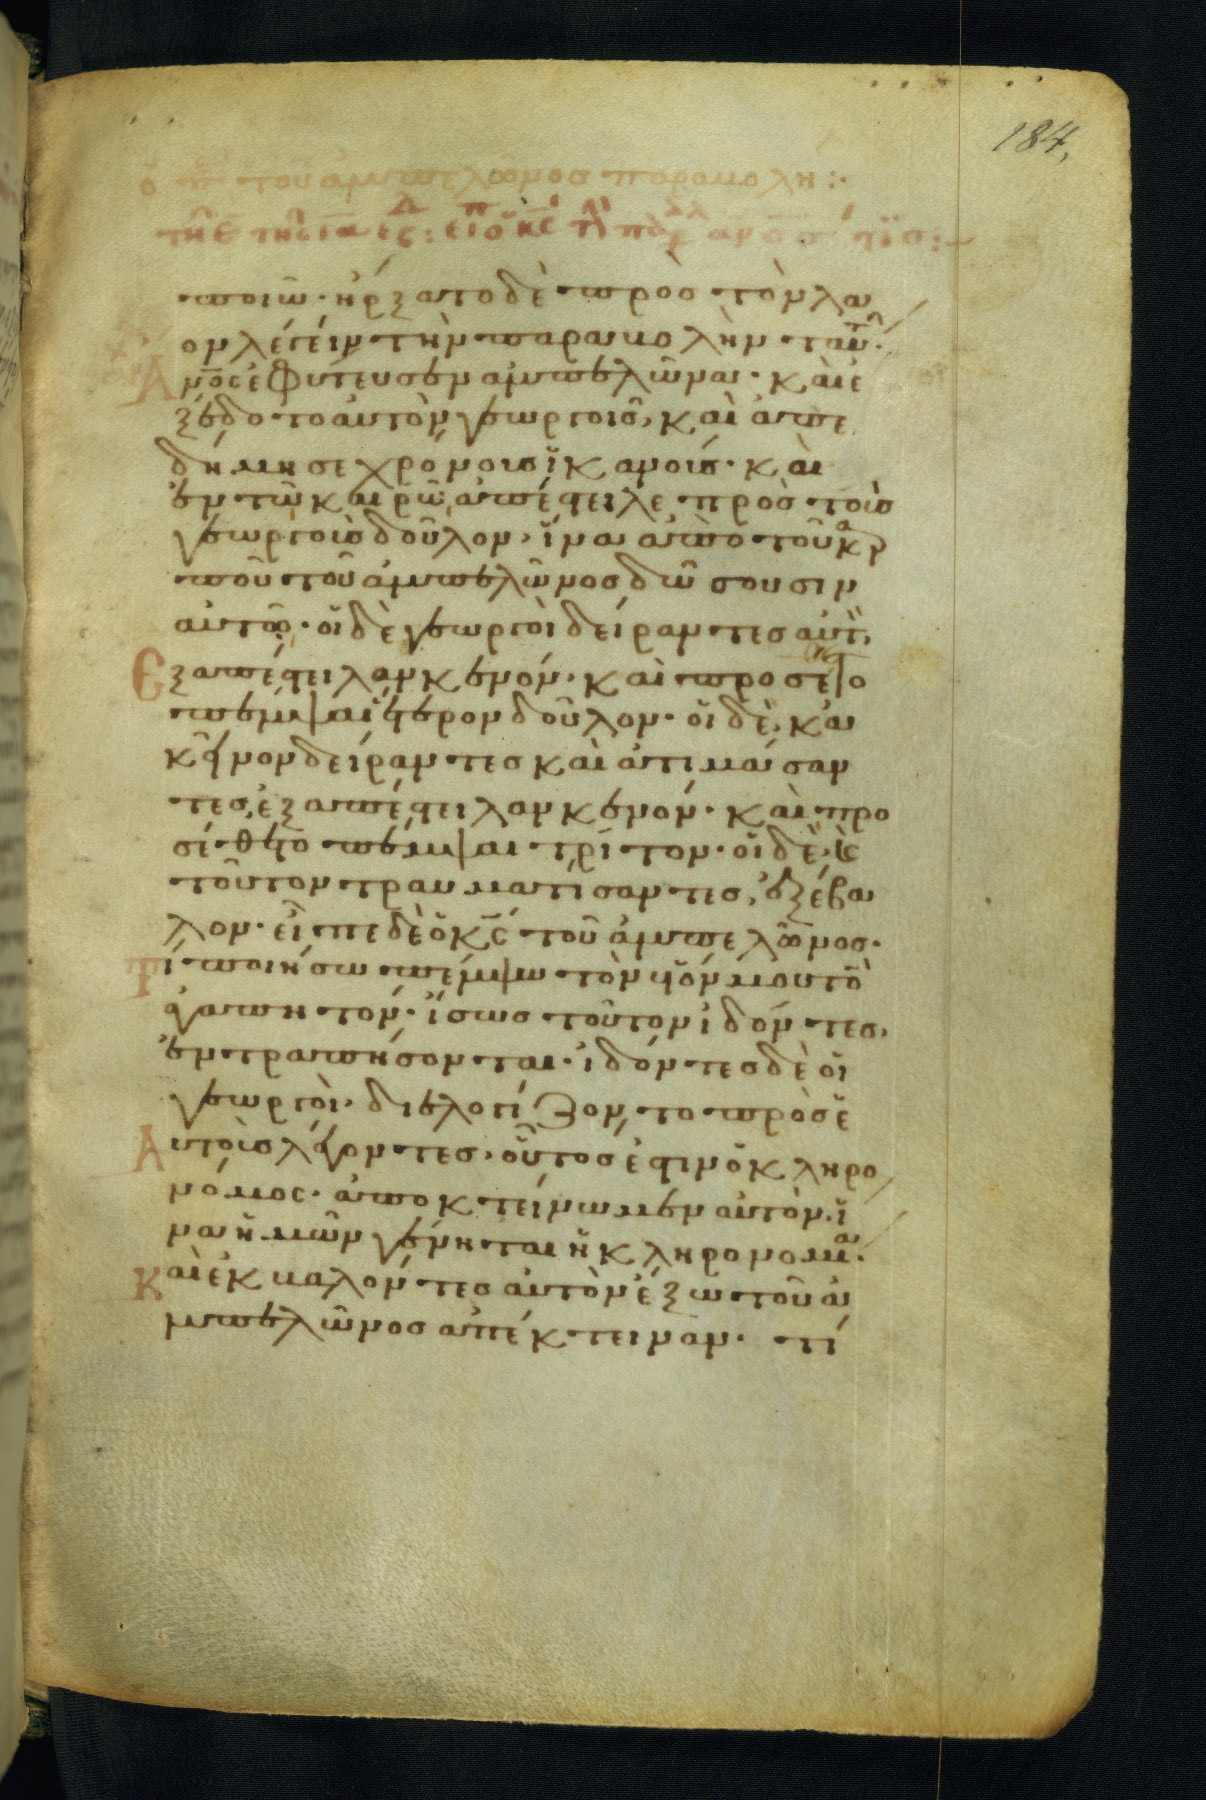 184,
τοῦ ἀμπελῶνος παραβολή:
ποιῶ· ἤρξατο δὲ πρὸς τὸν λα
ὸν λέγειν τὴν παραβολὴν ταύτ·
Ἄνος ἐφύτευσεν ἀμπελῶνα· καὶ ἐ
ξέδοτο αὐτὸν γεωργοῖς, καὶ ἀπε
δήμησε χρόνους ἱκανούς· καὶ
ἐν τῷ καιρῷ ἀπέστειλε πρὸς τοὺς
γεωργοὺς δοῦλον, ἵνα ἀπὸ τοῦ καρ
ποῦ τοῦ ἀμπελῶνος δώσουσιν
αὐτῷ· οἱ δὲ γεωργοὶ δείραντες αὐτὸ,
Ἐξαπέστειλαν κενόν· καὶ προσέθετο
πέμψαι ἕτερον δοῦλον· οἱ δὲ κἀ
κεῖνον δείραντες καὶ ἀτιμάσαν
τες, ἐξαπέστειλαν κενόν· καὶ προ
σέθετο πέμψαι τρίτον· οἱ δὲ κ
τοῦτον τραυματίσαντες, ἐξέβα
λον· εἶπε δὲ ὁ κς τοῦ ἀμπελῶνος·
Τί ποιήσω πέμψω τὸν υἱόν μου τὸ
ἀγαπητόν· ἴσως τοῦτον ἰδόντες,
ἐντραπήσονται· ἰδόντες δὲ οἱ
γεωργοὶ, διελογίζοντο πρὸς ἑ
Αυτοὺς λέγοντες· οὗτός ἐστιν ὁ κληρο
νόμος· ἀποκτείνωμεν αὐτὸν, ἵ
να ἡμῶν γένηται ἡ κληρονομία·
Καὶ ἐκβαλόντες αὐτὸν ἔξω τοῦ ἀ
μπελῶνος ἀπέκτειναν· τί